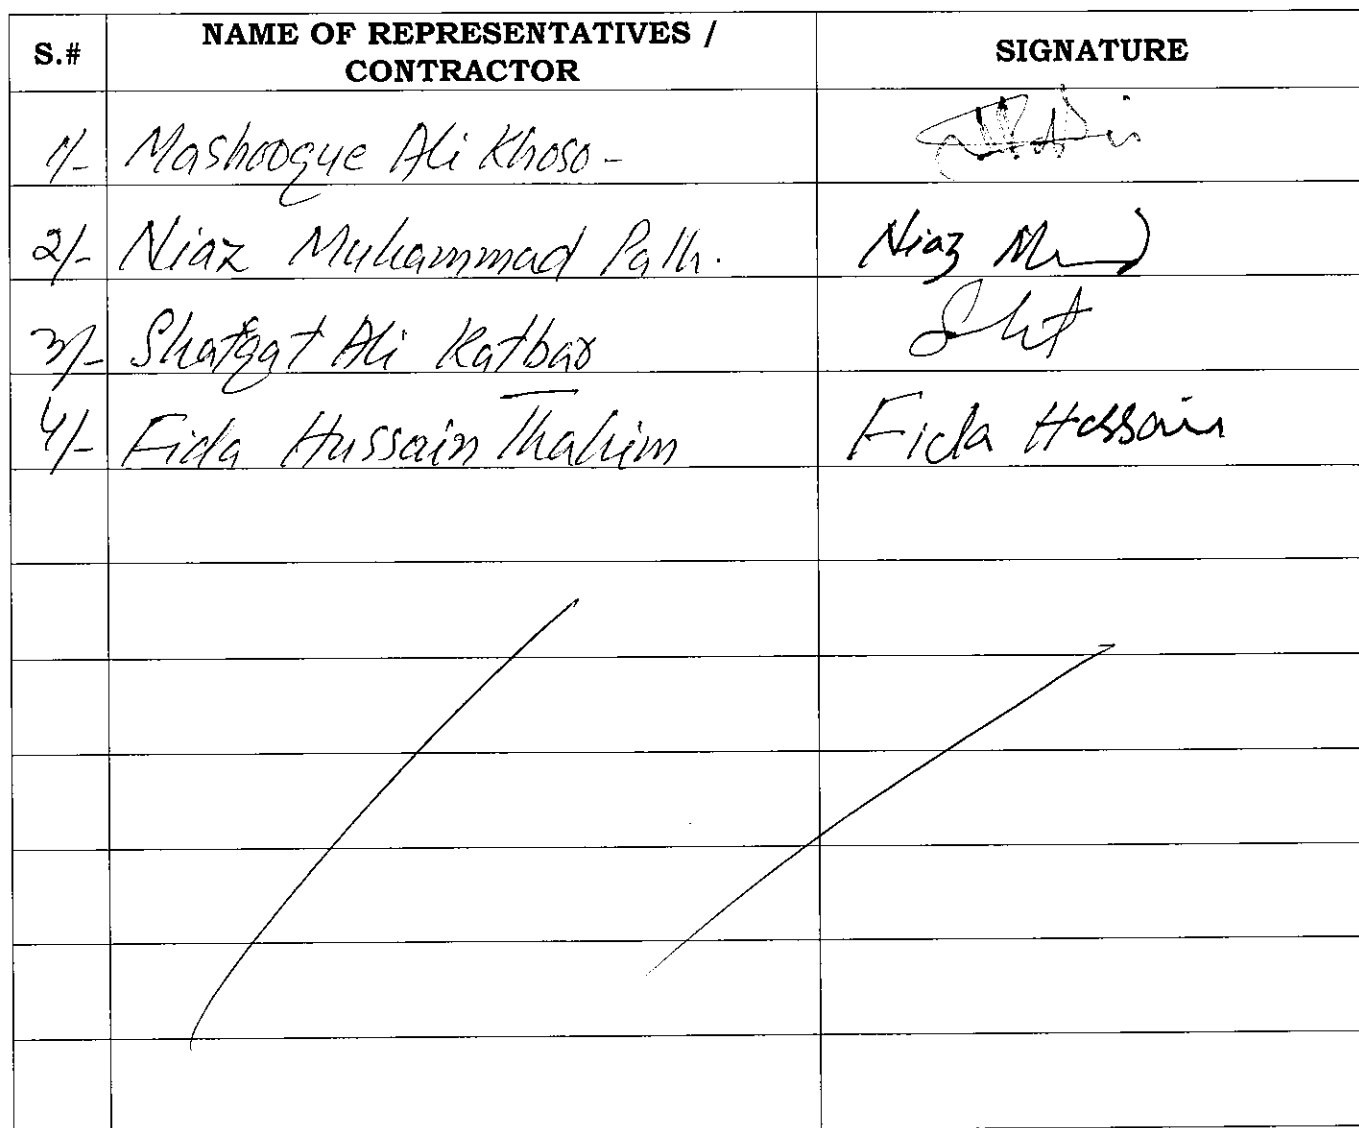 S.# NAME OF REPRESENTATIVES / CONTRACTOR SIGNATURE
1/- Mashooque Ali Khoso -
2/- Niaz Muhammad Palh. Niaz
3/- Shafqat Ali Katbar
4/- Fida Hussain Thahim Fida Hussain